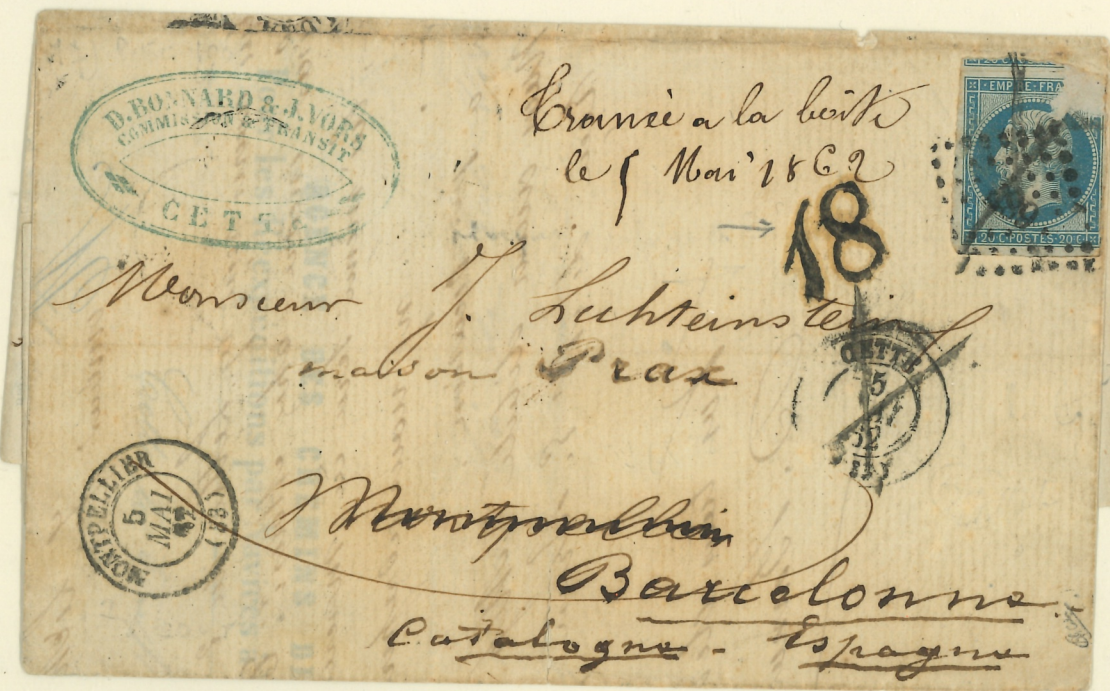 D. BONNARD & J. VORS
COMMISSION & TRANSIT
CETTE
Trouvé a la boite
le 5 Mai 1862
EMPIRE FRA
20 C·POSTES·20 C
18
Monsieur J. Lichteinstein
maison Prax
CETTE
5
62
MONTPELLIER
5
MAI
62
(33)
Montpellier
Barcelonne
Catalogne - Espagne